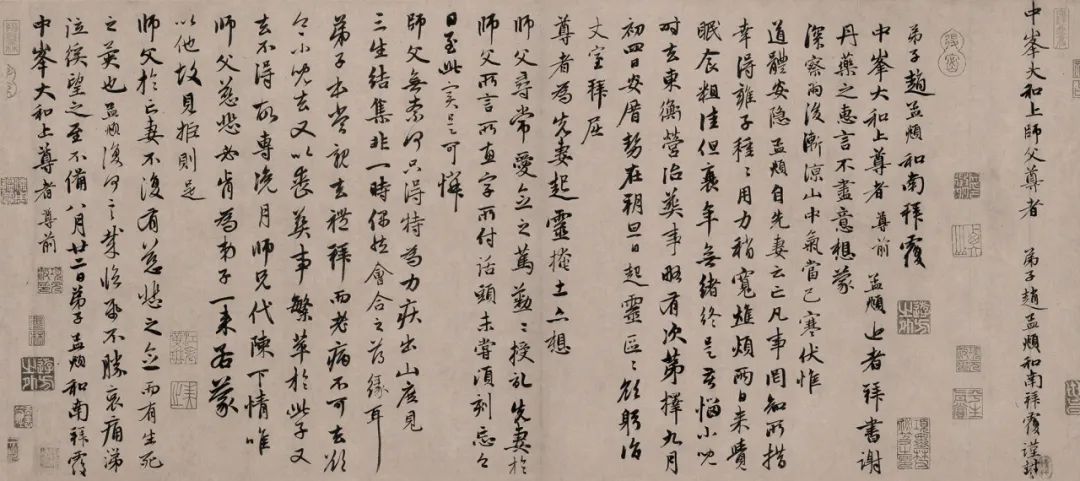 中峯大和上師父尊者　弟子趙孟頫和南拜覆謹封
弟子趙孟頫和南拜覆
中峯大和上尊者尊前　孟頫近者拜書謝
丹藥之惠言不盡意想蒙
深察雨後漸涼山中氣當已寒伏惟
道體安隱孟頫自先妻云亡凡事罔知所措
幸得雍子種種用力稍寬煎煩兩日來覺
眠食粗佳但衰年無緒終是苦惱小兒
時去東衡營治葬事略有次第擇九月
初四日安厝勢在朔旦日起靈區區欲躬詣
丈室拜屈
尊者為先妻起靈掩土想
師父尋常愛念之篤懃懃授記先妻於
師父所言所直字所付話頭未嘗須刻忘之
日至此實是可憐
師父無奈何只得特為力疾出山庶見
三生結集非一時偶然會合之薄緣耳
弟子本當親去禮拜而老病不可去欲
令小兒去又以喪葬事繁萃於此子又
去不得所專浼月師兄代陳下情唯
師父慈悲必肯為弟子一來若蒙
以他故見拒則是
師父於亡妻不復有慈悲之念而有生死
之異也孟頫復何言哉臨紙不勝哀痛涕
泣俟望之至不備八月廿二日弟子孟頫和南拜覆
中峯大和上尊者尊前